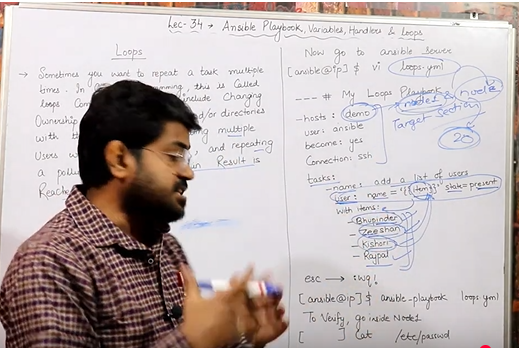 Lec-34 → Ansible Playbook, Variables, Handlers & loops
Loops
→ Sometimes you want to repeat a task multiple
times. In this is Called
loops Com include Changing
Ownership and/or directories
with th multiple
Users w and repeating
a poll Result is
Reache
Now go to ansible server
[ansible@ip] $ vi loops.yml
--- # My Loops Playbook
- hosts: demo
user: ansible
become: yes
Connection: ssh
tasks:
- name: add a list of users
user: name = '{{item}}' state=present
with items:
- Bhupinder
- Zeeshan
- Kishori
- Rajpal
node1 & node2
Target Section
20
esc → :wq!
[ansible@ip] $ ansible-playbook loops.yml
To Verify, go inside Node1
[ ] Cat /etc/passwd